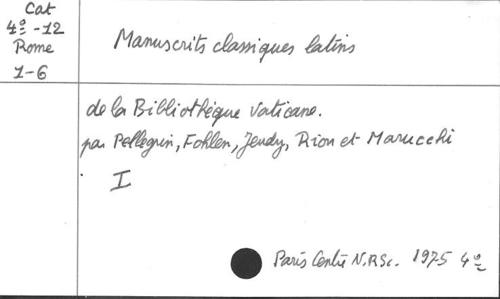 Cat
4º-12
Rome
1-6
Manuscrits classiques latins
de la Bibliothèque Vaticane.
par Pellegrin, Fohlen, Jeudy, Riou et Marucchi
I
Paris Centre N.R.Sc. 1975 4º